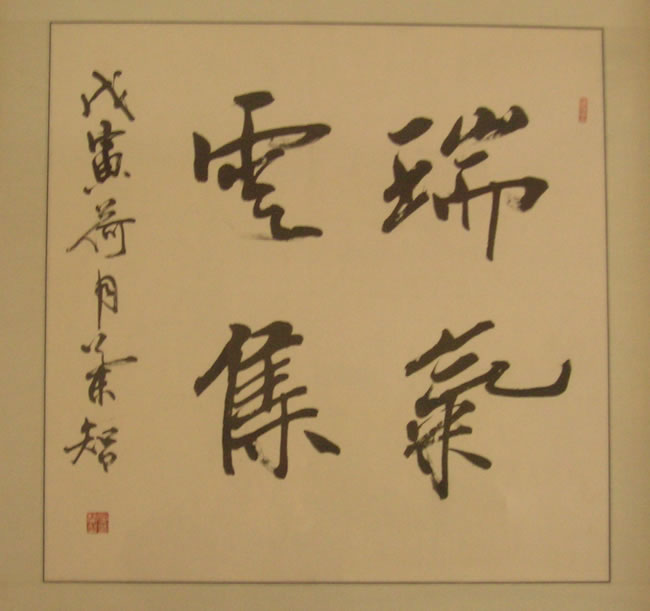 瑞氣
雲集
戊寅荷月智